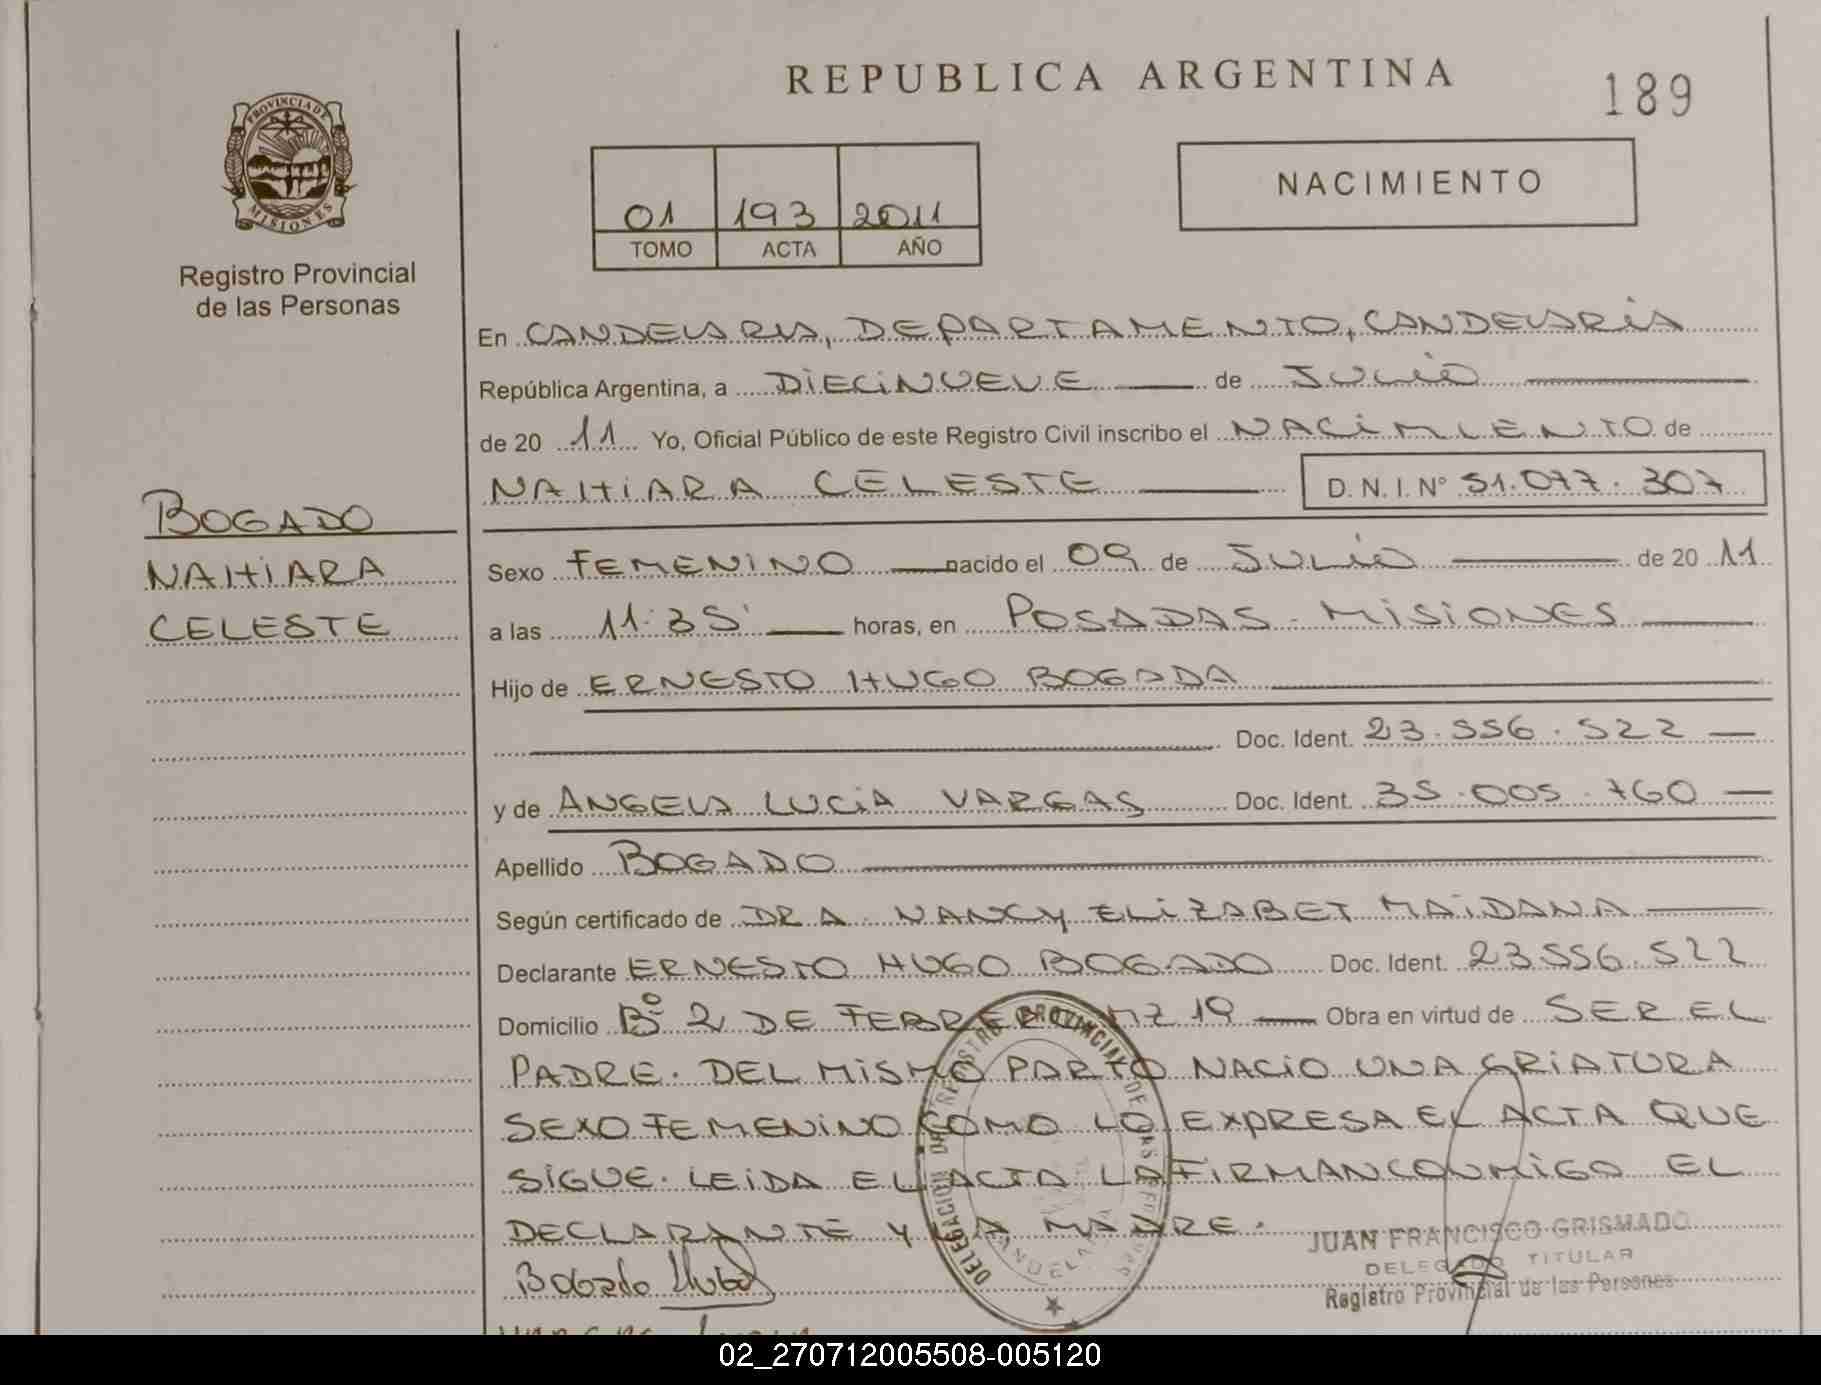 REPUBLICA ARGENTINA
189
PROVINCIA DE MISIONES
Registro Provincial
de las Personas
01 193 2011
TOMO ACTA AÑO
NACIMIENTO
En CANDELARIA, DEPARTAMENTO, CANDELARIA
República Argentina, a DIECINUEVE de JULIO
de 20 11 Yo, Oficial Público de este Registro Civil inscribo el NACIMIENTO de
NAHIARA CELESTE D.N.I. N° 51.077.307
BOGADO
NAHIARA
CELESTE
Sexo FEMENINO nacido el 09 de JULIO de 20 11
a las 11:35' horas, en POSADAS - MISIONES
Hijo de ERNESTO HUGO BOGADA
Doc. Ident. 23.556.522
y de ANGELA LUCIA VARGAS Doc. Ident. 35.005.760
Apellido BOGADO
Según certificado de DRA. NANCY ELIZABET MAIDANA
Declarante ERNESTO HUGO BOGADO Doc. Ident. 23.556.522
Domicilio B° 2 DE FEBRERO MZ 19 Obra en virtud de SER EL
PADRE. DEL MISMO PARTO NACIO UNA CRIATURA
SEXO FEMENINO COMO LO EXPRESA EL ACTA QUE
SIGUE. LEIDA EL ACTA LA FIRMAN CONMIGO EL
DECLARANTE Y LA MADRE.
Bogado Hugo
DELEGACION DEL REGISTRO PROVINCIAL DE LAS PERSONAS
CANDELARIA
JUAN FRANCISCO GRISMADO
DELEGADO TITULAR
Registro Provincial de las Personas
02_270712005508-005120